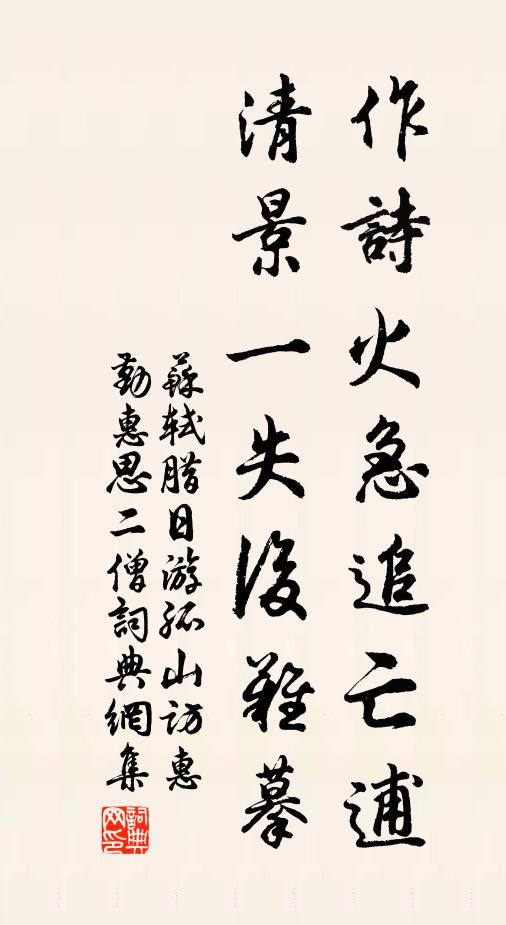 作詩火急追亡逋
清景一失後難摹
蘇軾腊日游孤山訪惠
勤惠思二僧詞典網集
詞典網印